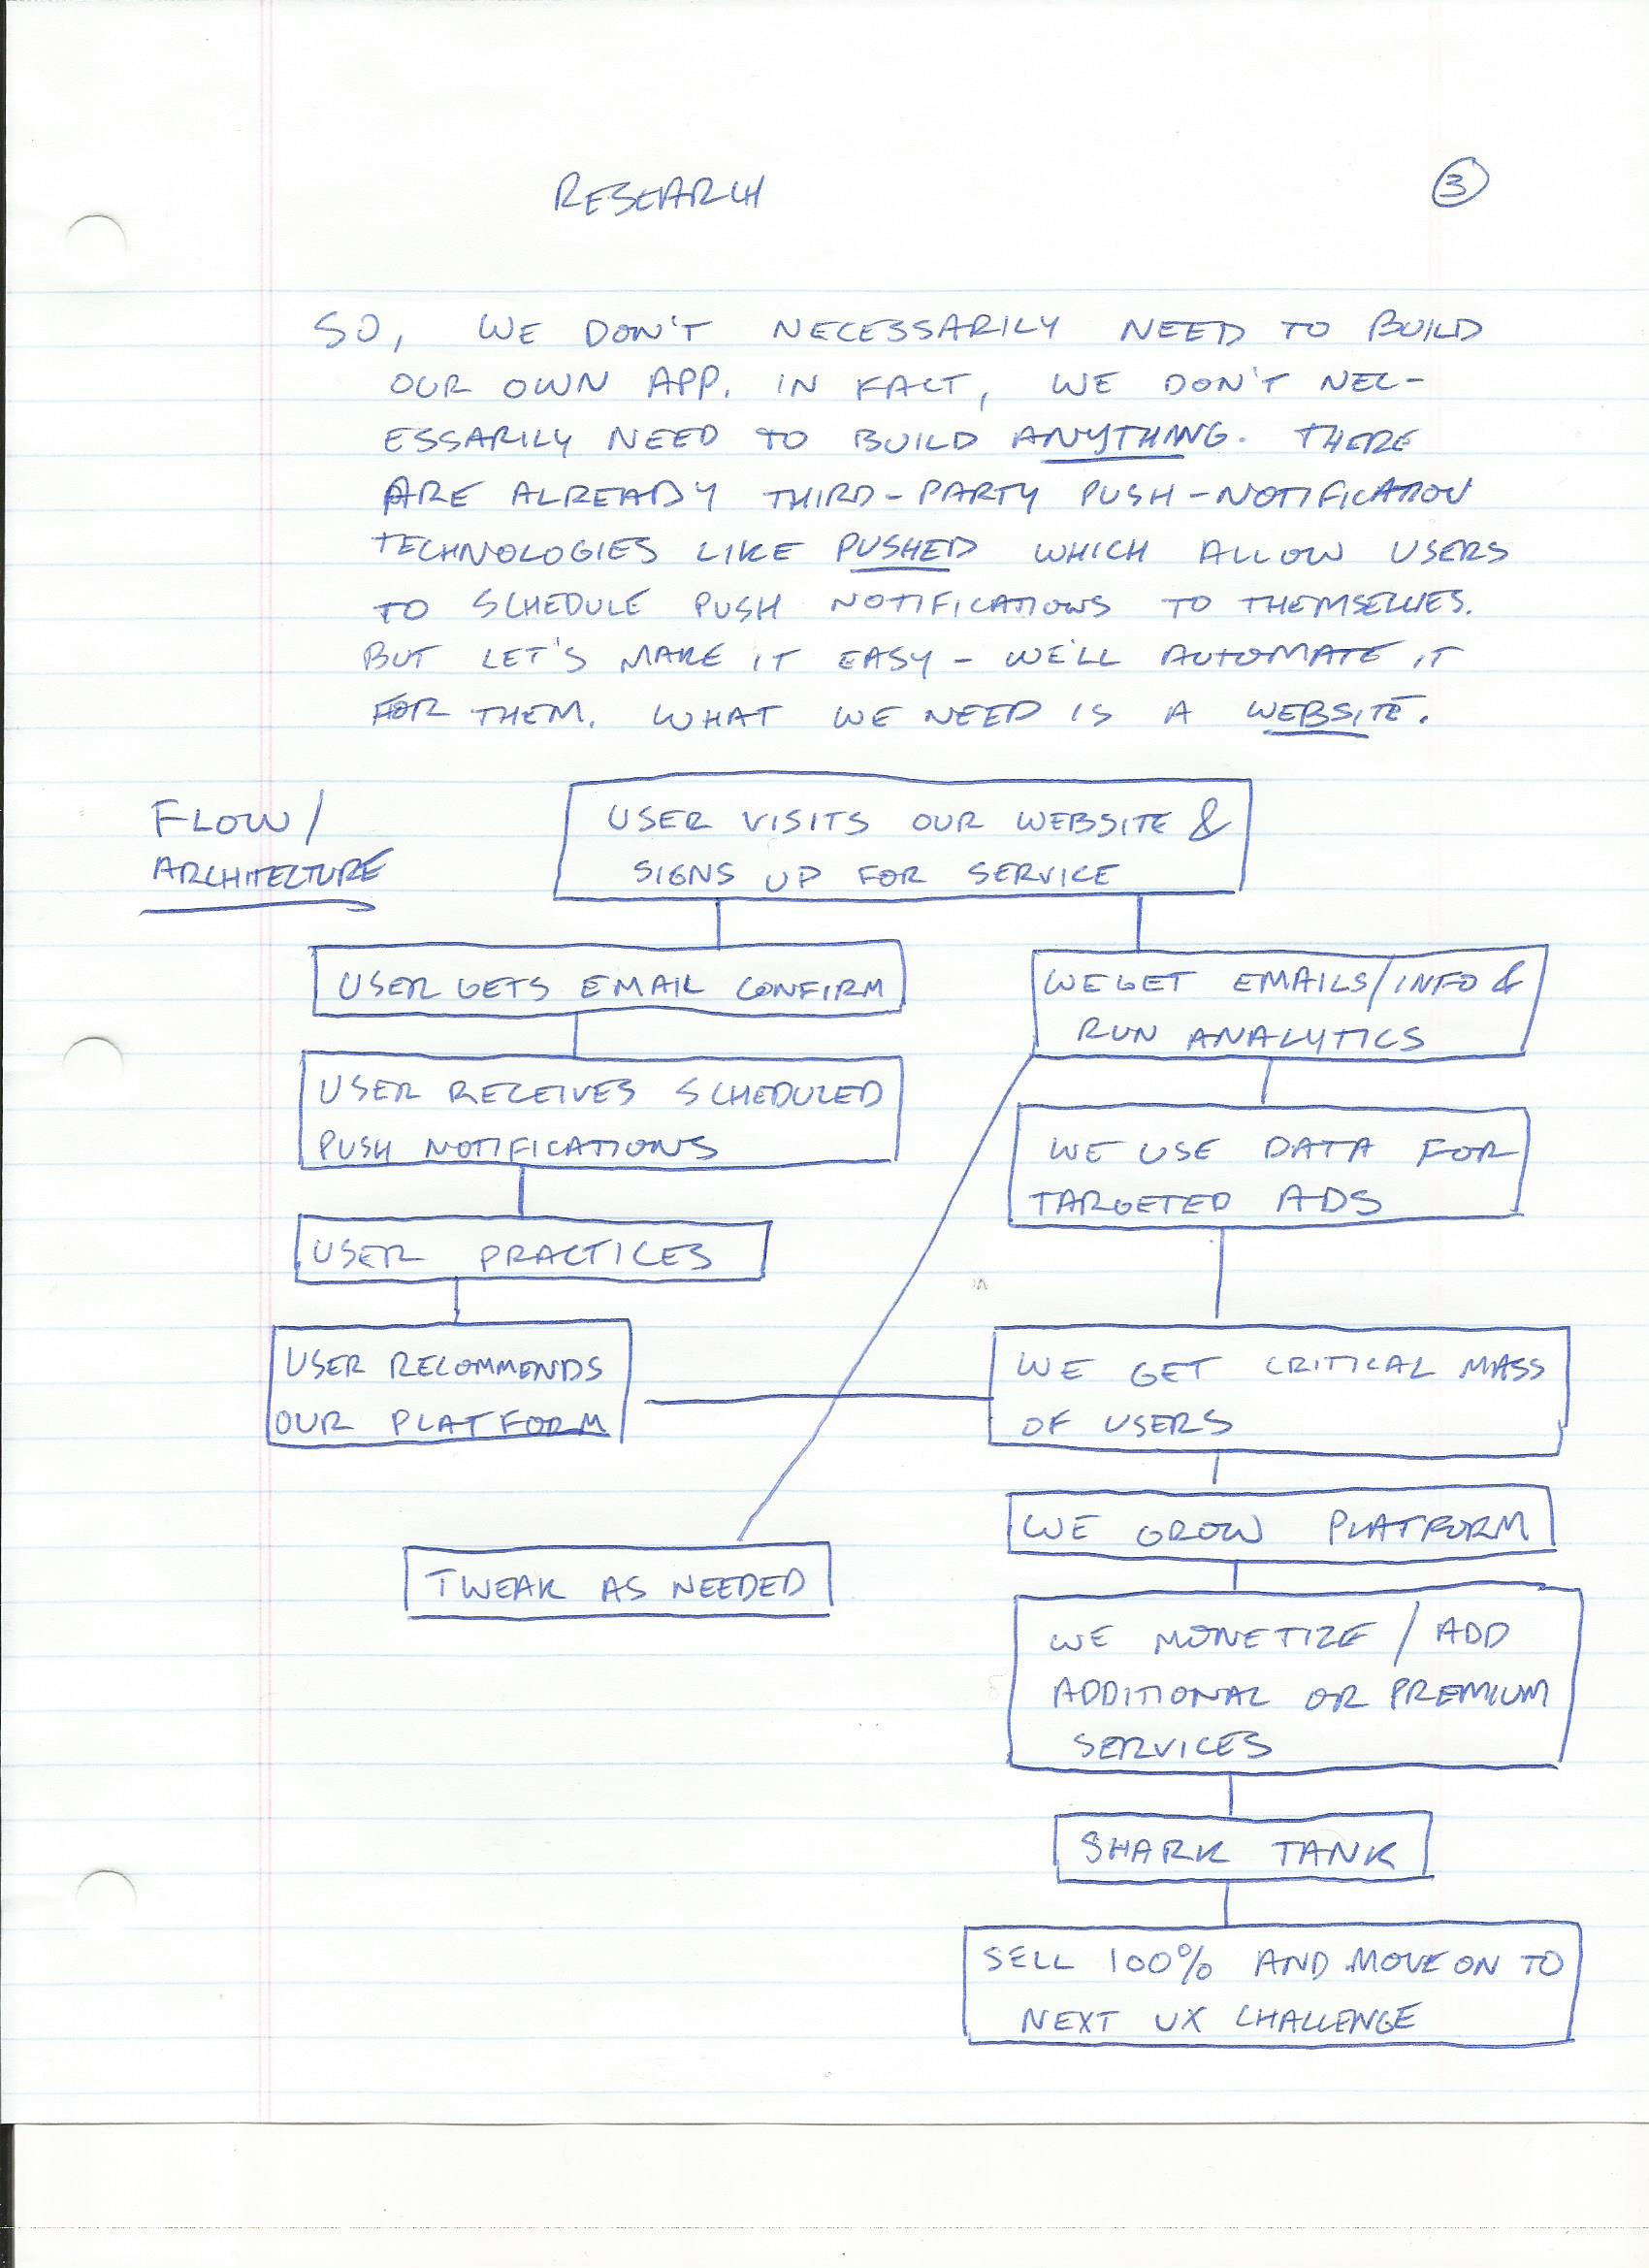 RESEARCH
3
SO, WE DON'T NECESSARILY NEED TO BUILD
OUR OWN APP. IN FACT, WE DON'T NEC-
ESSARILY NEED TO BUILD ANYTHING. THERE
ARE ALREADY THIRD-PARTY PUSH-NOTIFICATION
TECHNOLOGIES LIKE PUSHED WHICH ALLOW USERS
TO SCHEDULE PUSH NOTIFICATIONS TO THEMSELVES.
BUT LET'S MAKE IT EASY - WE'LL AUTOMATE IT
FOR THEM. WHAT WE NEED IS A WEBSITE.
FLOW/
ARCHITECTURE
USER VISITS OUR WEBSITE &
SIGNS UP FOR SERVICE
USER GETS EMAIL CONFIRM
USER RECEIVES SCHEDULED
PUSH NOTIFICATIONS
USER PRACTICES
USER RECOMMENDS
OUR PLATFORM
WE GET EMAILS/INFO &
RUN ANALYTICS
WE USE DATA FOR
TARGETED ADS
WE GET CRITICAL MASS
OF USERS
TWEAK AS NEEDED
WE GROW PLATFORM
WE MONETIZE / ADD
ADDITIONAL OR PREMIUM
SERVICES
SHARK TANK
SELL 100% AND MOVE ON TO
NEXT UX CHALLENGE